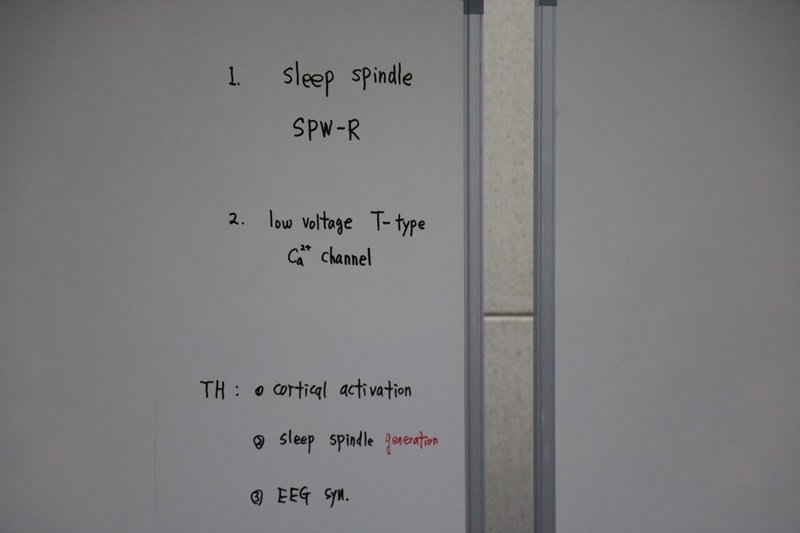 1. sleep spindle
SPW-R
2. low voltage T-type
Ca²⁺ channel
TH : ① cortical activation
② sleep spindle generation
③ EEG syn.